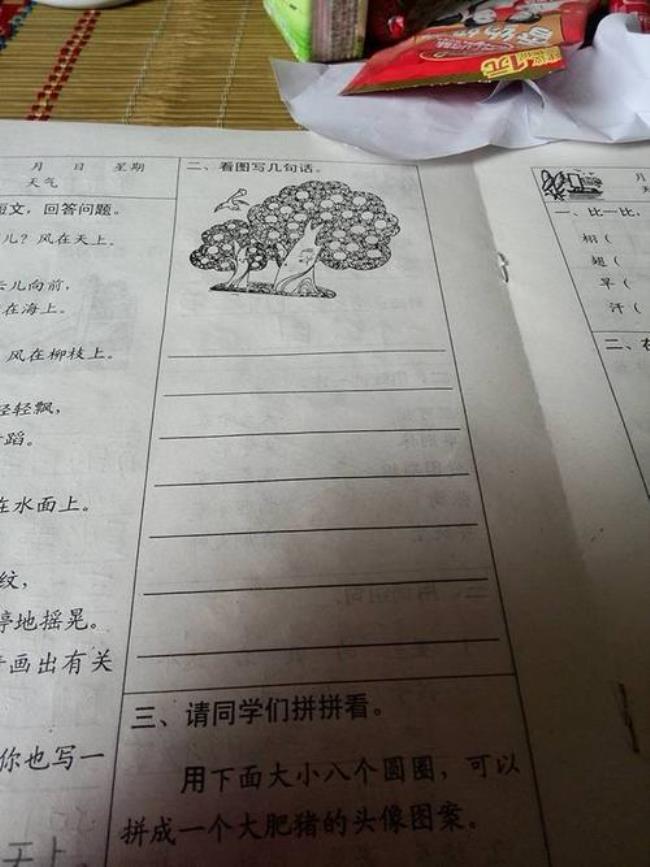 月 日 星期
天气
短文，回答问题。
儿？风在天上。
云儿向前，
在海上。
风在柳枝上。
轻轻飘，
蹈。
在水面上。
纹，
停地摇晃。
画出有关
你也写一
天上
二、看图写几句话。
三、请同学们拼拼看。
用下面大小八个圆圈，可以
拼成一个大肥猪的头像图案。
月
一、比一比，
栩（
翅（
早（
汗（
二、在
1元